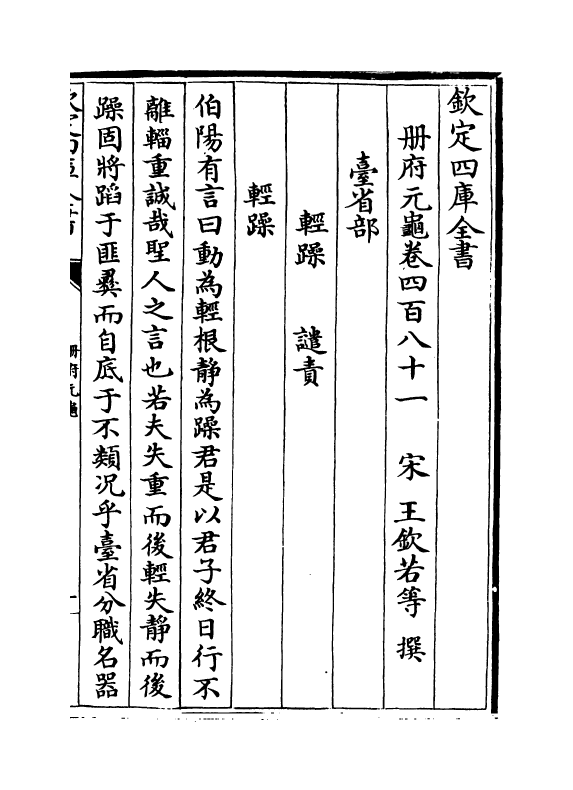 欽定四庫全書
册府元龜卷四百八十一　宋　王欽若等　撰
臺省部
輕躁　譴責
輕躁
伯陽有言曰動為輕根静為躁君是以君子終日行不
離輜重誠哉聖人之言也若夫失重而後輕失静而後
躁固將蹈于匪彞而自底于不類况乎臺省分職名器
册府元龜